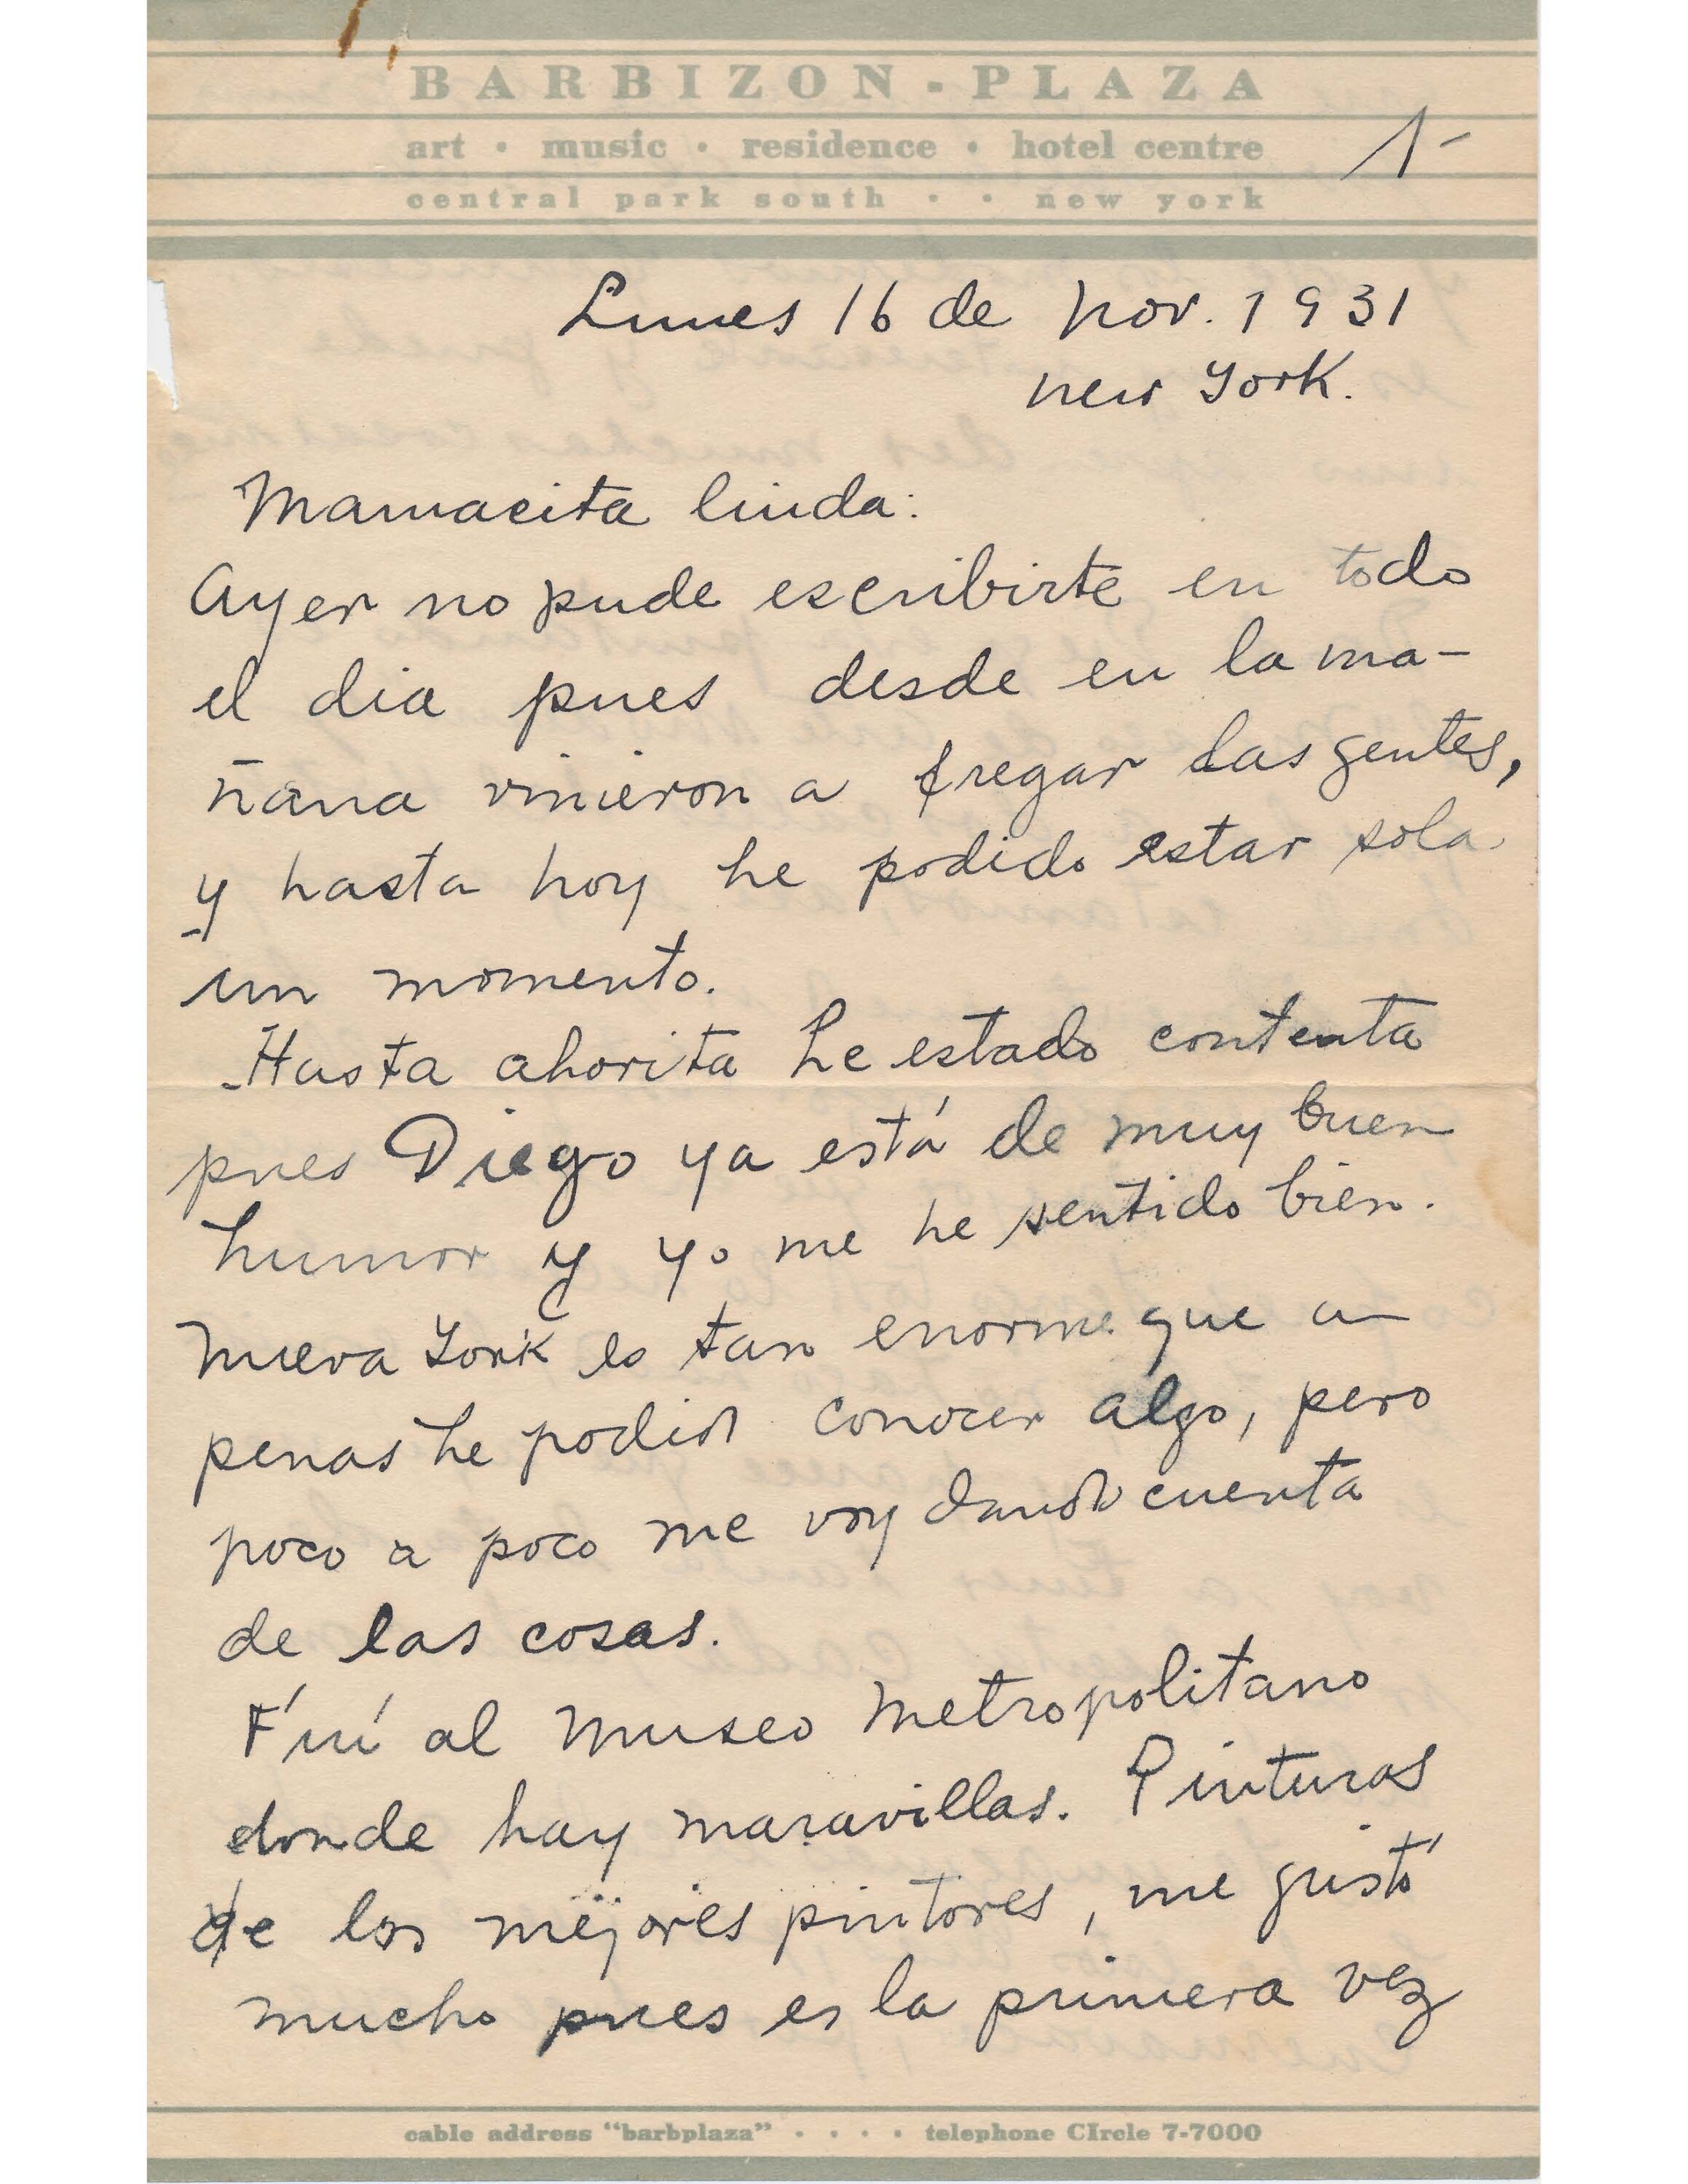 BARBIZON - PLAZA
art • music • residence • hotel centre
1-
central park south • • new york
Lunes 16 de Nov. 1931
New York.
Mamacita linda:
Ayer no pude escribirte en todo
el dia pues desde en la ma-
ñana vinieron a fregar las gentes,
y hasta hoy he podido estar sola
un momento.
Hasta ahorita he estado contenta
pues Diego ya está de muy buen
humor y yo me he sentido bien.
Nueva York es tan enorme que a
penas he podido conocer algo, pero
poco a poco me voy dando cuenta
de las cosas.
Fuí al Museo Metropolitano
donde hay maravillas. Pinturas
de los mejores pintores, me gustó
mucho pues es la primera vez
cable address "barbplaza" • • • • telephone CIrcle 7-7000